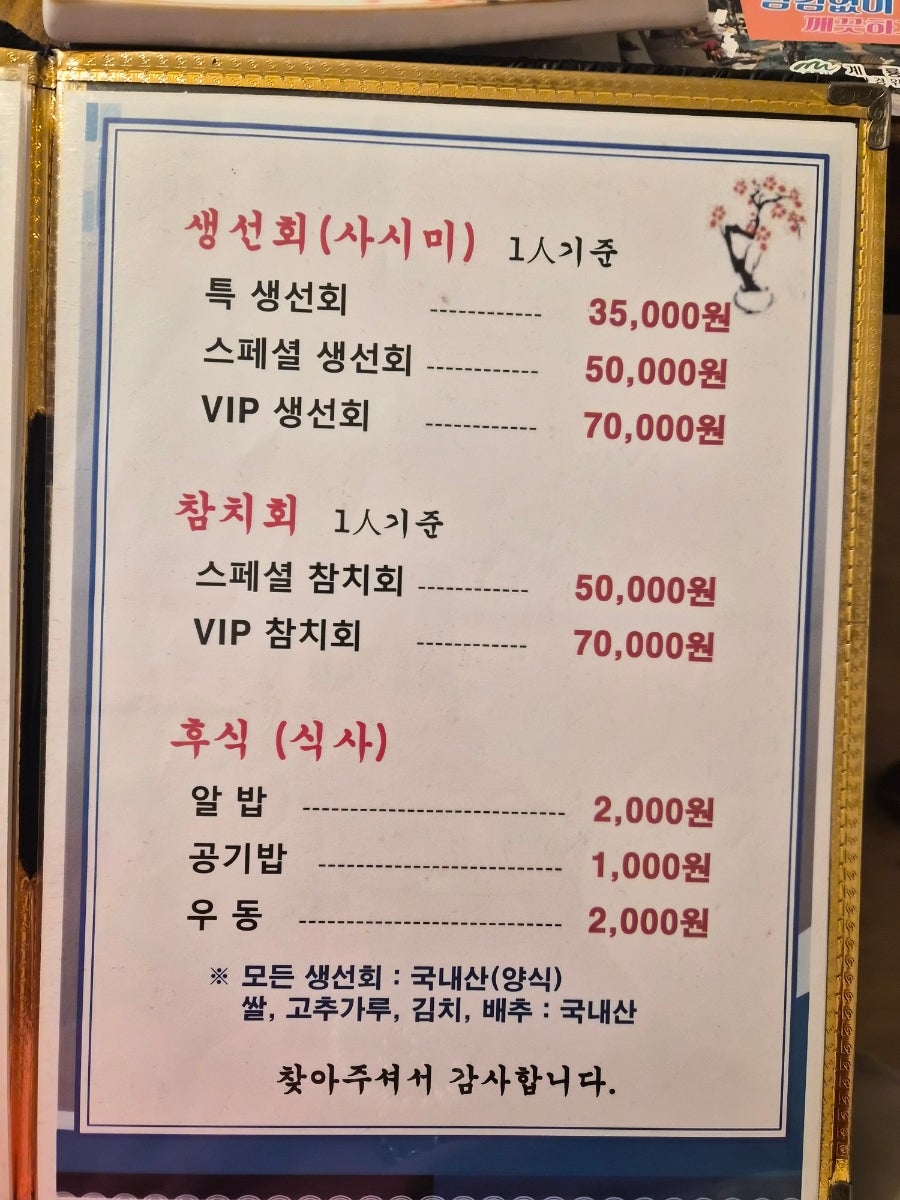 깨끗하
생선회(사시미) 1人기준
특 생선회 ------------ 35,000원
스페셜 생선회 ------------ 50,000원
VIP 생선회 ------------ 70,000원
참치회 1人기준
스페셜 참치회 ------------ 50,000원
VIP 참치회 ------------ 70,000원
후식 (식사)
알 밥 ---------------------------- 2,000원
공기밥 -------------------------- 1,000원
우 동 ---------------------------- 2,000원
※ 모든 생선회 : 국내산(양식)
쌀, 고추가루, 김치, 배추 : 국내산
찾아주셔서 감사합니다.